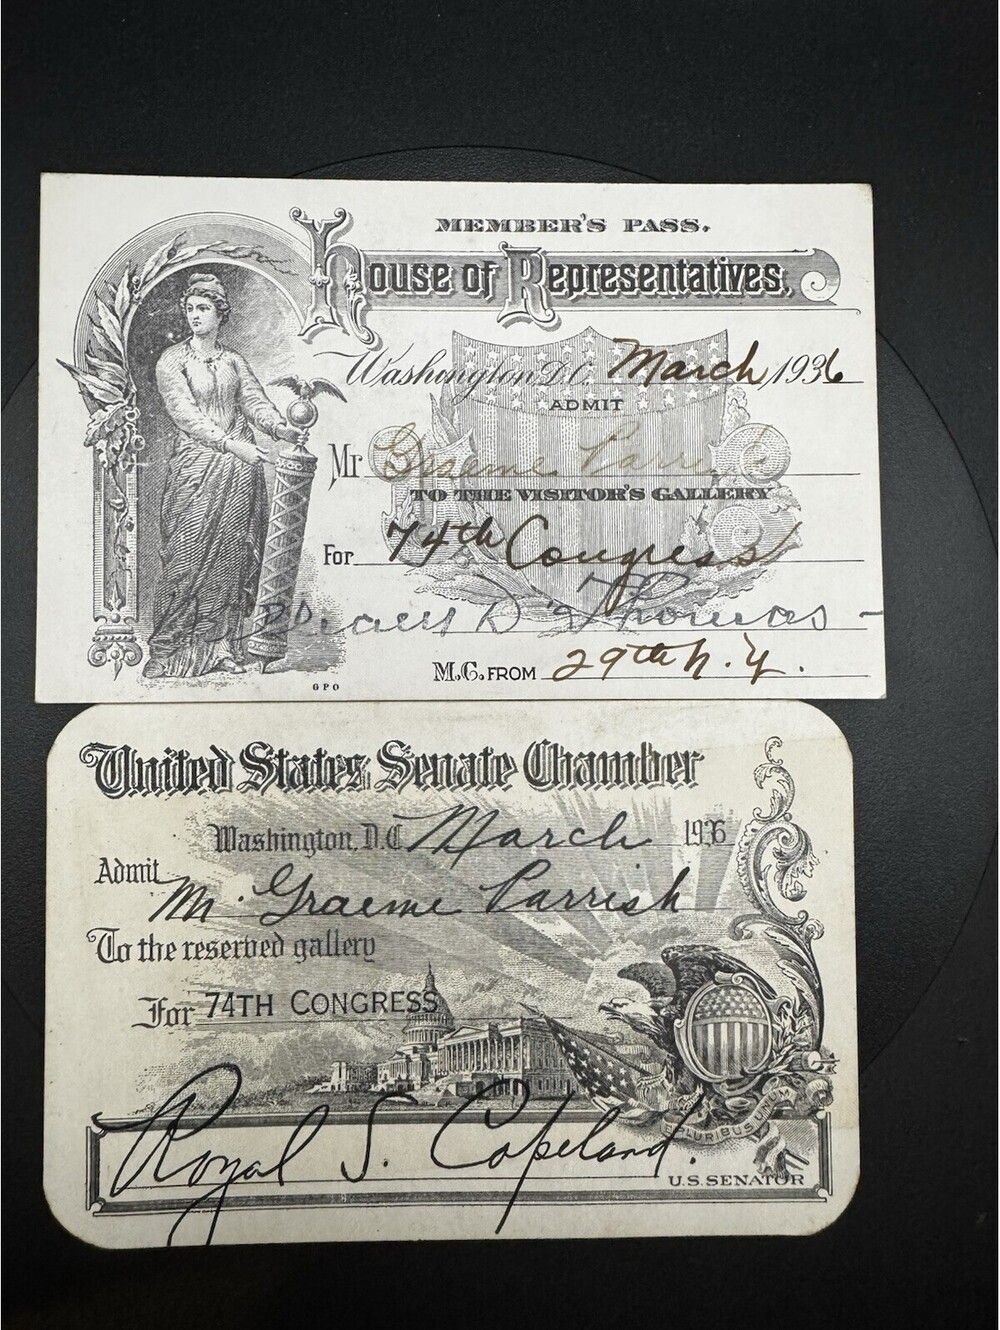 MEMBER'S PASS.
House of Representatives,
Washington D.C. March 1936
ADMIT
Mr Graeme Parrish
TO THE VISITOR'S GALLERY
For 74th Congress
D Thomas
M.C. FROM 29th N.Y.
GPO
United States Senate Chamber
Washington, D.C. March 1936
Admit
Mr. Graeme Parrish
To the reserved gallery
For 74TH CONGRESS
E PLURIBUS UNUM
Royal S. Copeland.
U.S. SENATOR